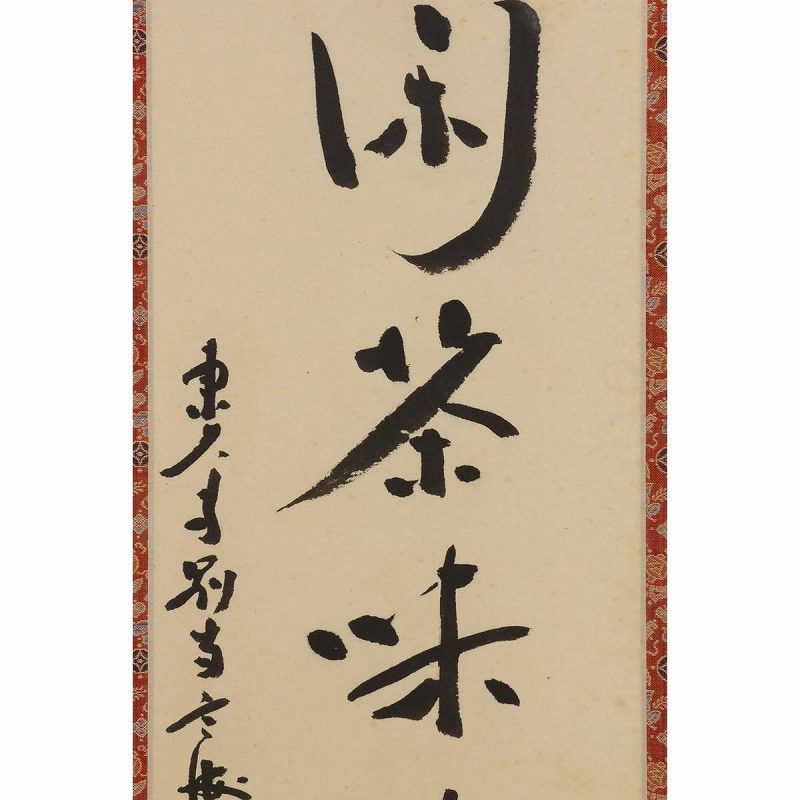 閑茶味
東大寺別当